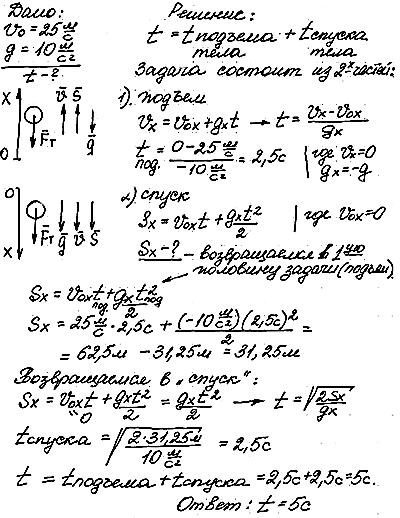 Дано:
v₀ = 25 м/с
g = 10 м/с²
t - ?
Решение:
t = t подъема тела + t спуска тела
Задача состоит из 2ˣ частей:
X
0
F̄т
v̄ S̄
ḡ
1). подъем
vx = v₀x + gxt → t = (vx - v₀x)/gx
t под. = (0 - 25 м/с)/(-10 м/с²) = 2,5с | где vx = 0
gx = -g
0
X
F̄т ḡ v̄ S̄
2) спуск
Sx = v₀xt + gxt²/2 | где v₀x = 0
Sx - ? - возвращаемся в 1ую
половину задачи (подъем)
Sx = v₀xt под. + gxt² под/2
Sx = 25 м/с · 2,5с + (-10 м/с²)(2,5с)²/2 =
= 62,5м - 31,25м = 31,25м
Возвращаемся в „спуск“:
Sx = v₀xt + gxt²/2 = gxt²/2 → t = √(2Sx/gx)
"0
t спуска = √(2·31,25м/10 м/с²) = 2,5с
t = t подъема + t спуска = 2,5с + 2,5с = 5с.
Ответ: t = 5с